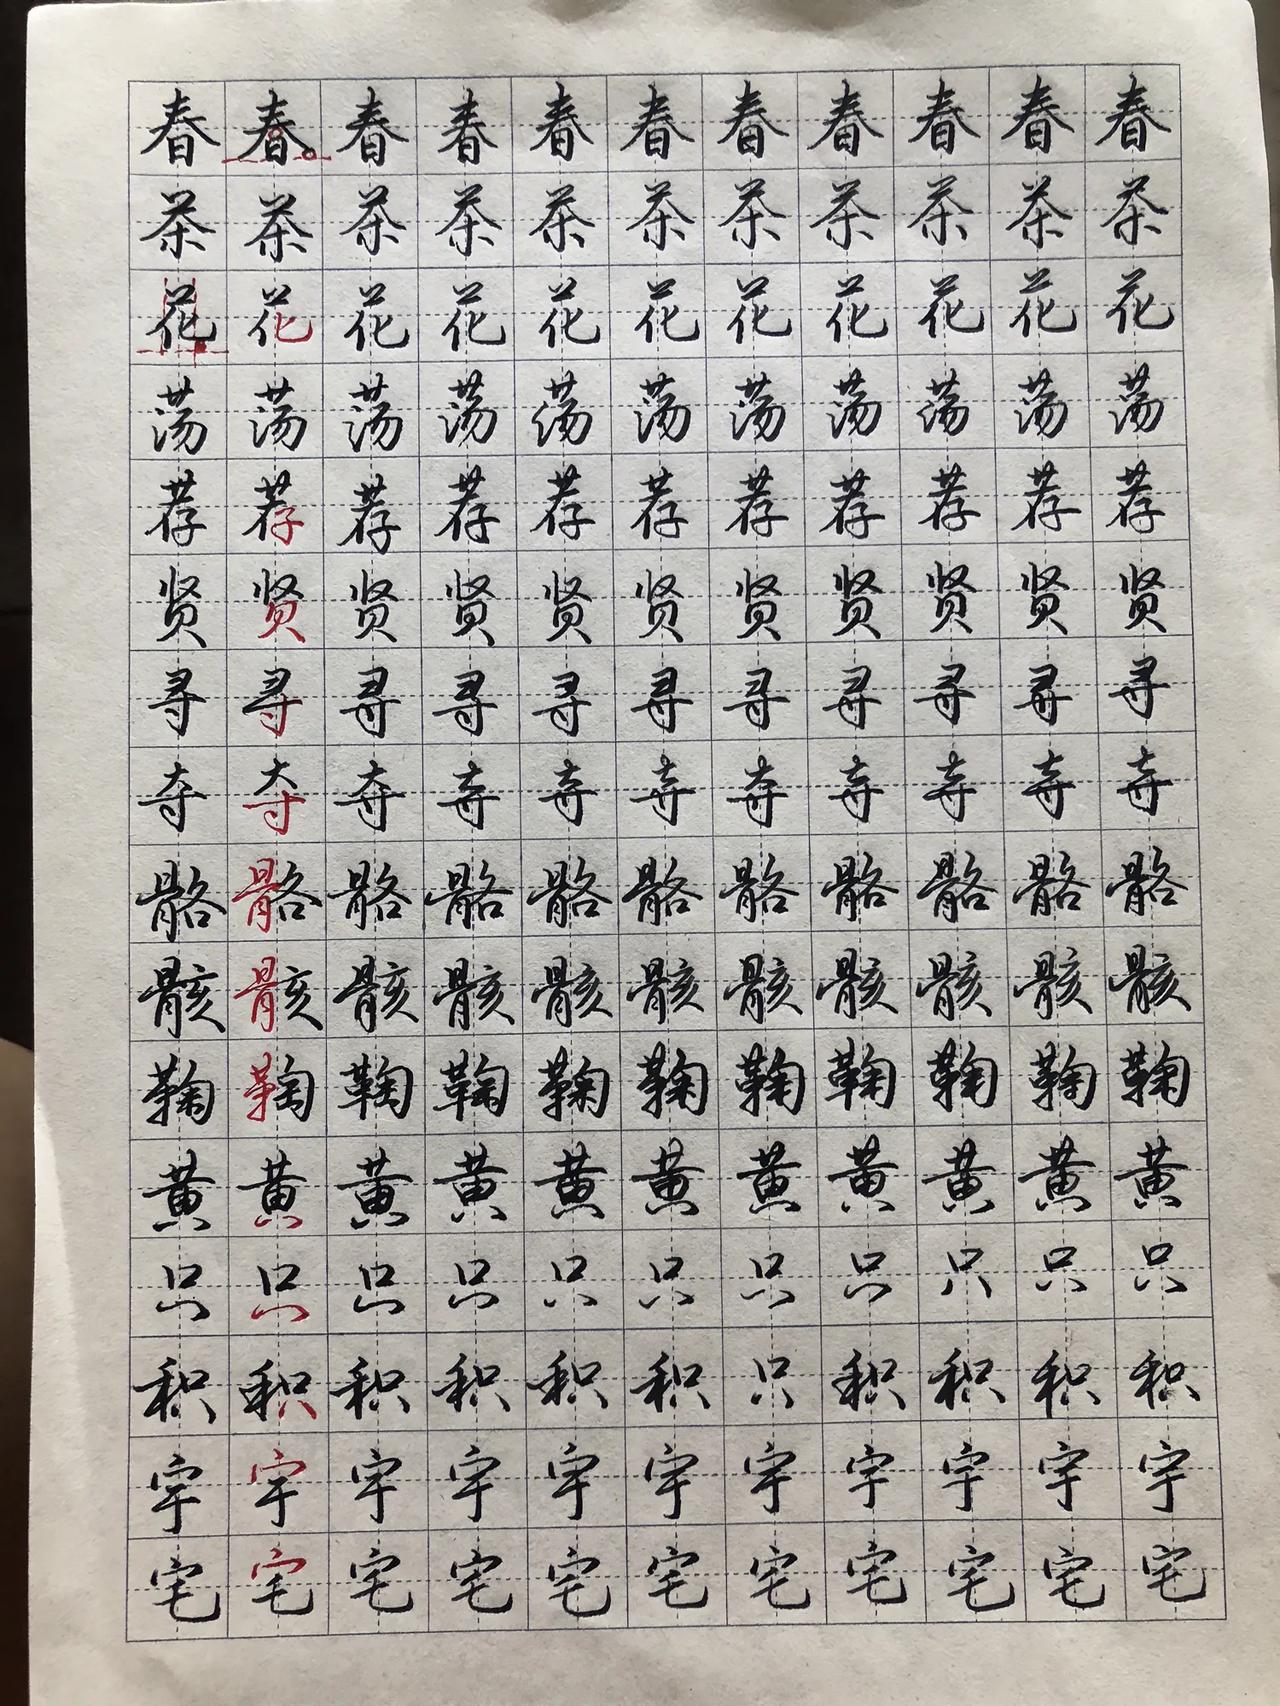 春春春春春春春春春春春
茶茶茶茶茶茶茶茶茶茶茶
花花花花花花花花花花花
荡荡荡荡荡荡荡荡荡荡荡
荐荐荐荐荐荐荐荐荐荐荐
贤贤贤贤贤贤贤贤贤贤贤
寻寻寻寻寻寻寻寻寻寻寻
夺夺夺夺夺夺夺夺夺夺夺
骼骼骼骼骼骼骼骼骼骼骼
骸骸骸骸骸骸骸骸骸骸骸
鞠鞠鞠鞠鞠鞠鞠鞠鞠鞠鞠
黄黄黄黄黄黄黄黄黄黄黄
只只只只只只只只只只只
积积积积积积只积积积积
宇宇宇宇宇宇宇宇宇宇宇
宅宅宅宅宅宅宅宅宅宅宅